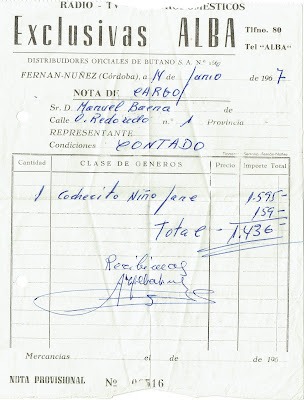 RADIO - TV ELECTRODOMÉSTICOS
Exclusivas ALBA
Tlfno. 80
Tel "ALBA"
DISTRIBUIDORES OFICIALES DE BUTANO S. A. N.º
FERNAN-NUÑEZ (Córdoba), a 14 de junio de 1967
NOTA DE CARGO
Sr. D. Manuel Baena de
Calle C. Redondo n.º 1 Provincia
REPRESENTANTE
Condiciones CONTADO
Cantidad CLASE DE GENEROS Precio Importe Total
1 Cochecito Niño Jane 1.595-
159-
Total - 1.436-
Recibimos
Mercancias el de de 196
NOTA PROVISIONAL Nº